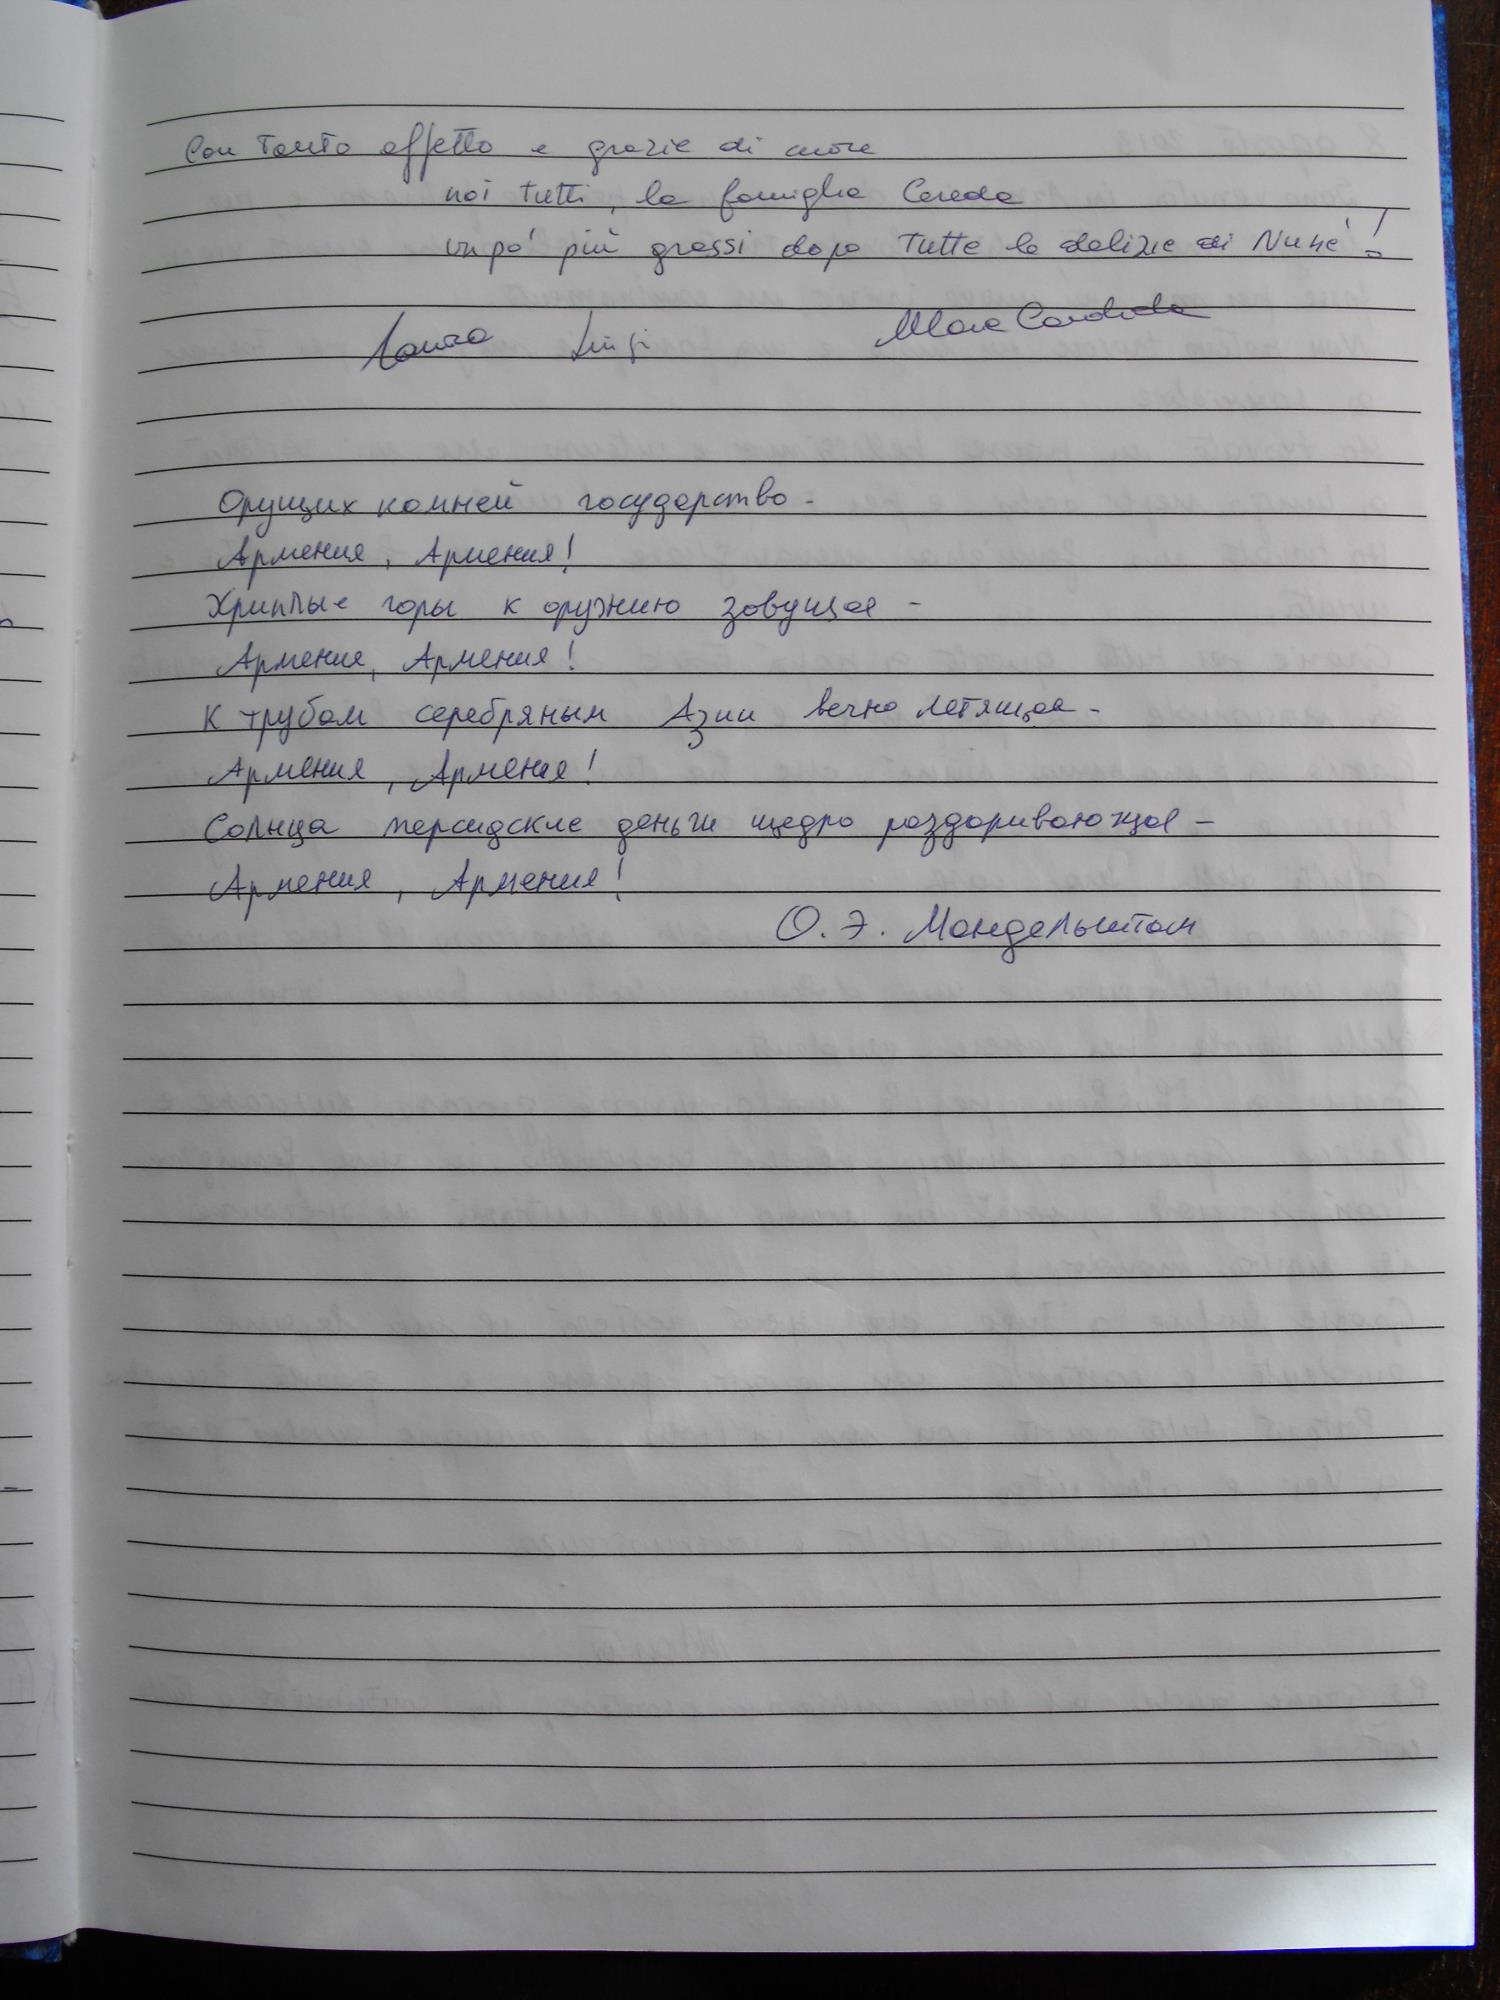 Con tanto affetto e grazie di cuore
noi tutti, la famiglia Cereda
un po' più grossi dopo tutte le delizie di Nuné!
Laura Luigi Maria Candida
Орущих камней государство -
Армения, Армения!
Хриплые горы к оружию зовущая -
Армения, Армения!
К трубам серебряным Азии вечно летящая -
Армения, Армения!
Солнца персидские деньги щедро раздаривающая -
Армения, Армения!
О. Э. Мандельштам